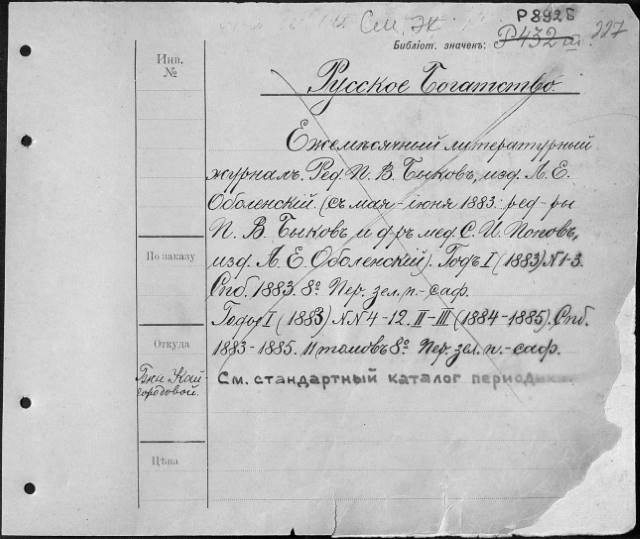 См. ЭК
Р8925
Библіот. значекъ: Р432 III. 227
Инв.
№
Русское Богатство.
Ежемѣсячный литературный
журналъ. Ред. П. В. Быковъ, изд. Л. Е.
Оболенскій. (съ мая-іюня 1883: ред-ры
П. В. Быковъ и д-ръ мед. С. И. Поповъ,
изд. Л. Е. Оболенскій). Годъ I (1883) №1-3.
По заказу
Спб. 1883. 8º. Пер. зел. п.-саф.
Годы I (1883) №№ 4-12. II-III (1884-1885). Спб.
Откуда
1883-1885. 11 томовъ 8º. Пер. зел. п.-саф.
городовой.
См. стандартный каталог периодики.
Цѣна